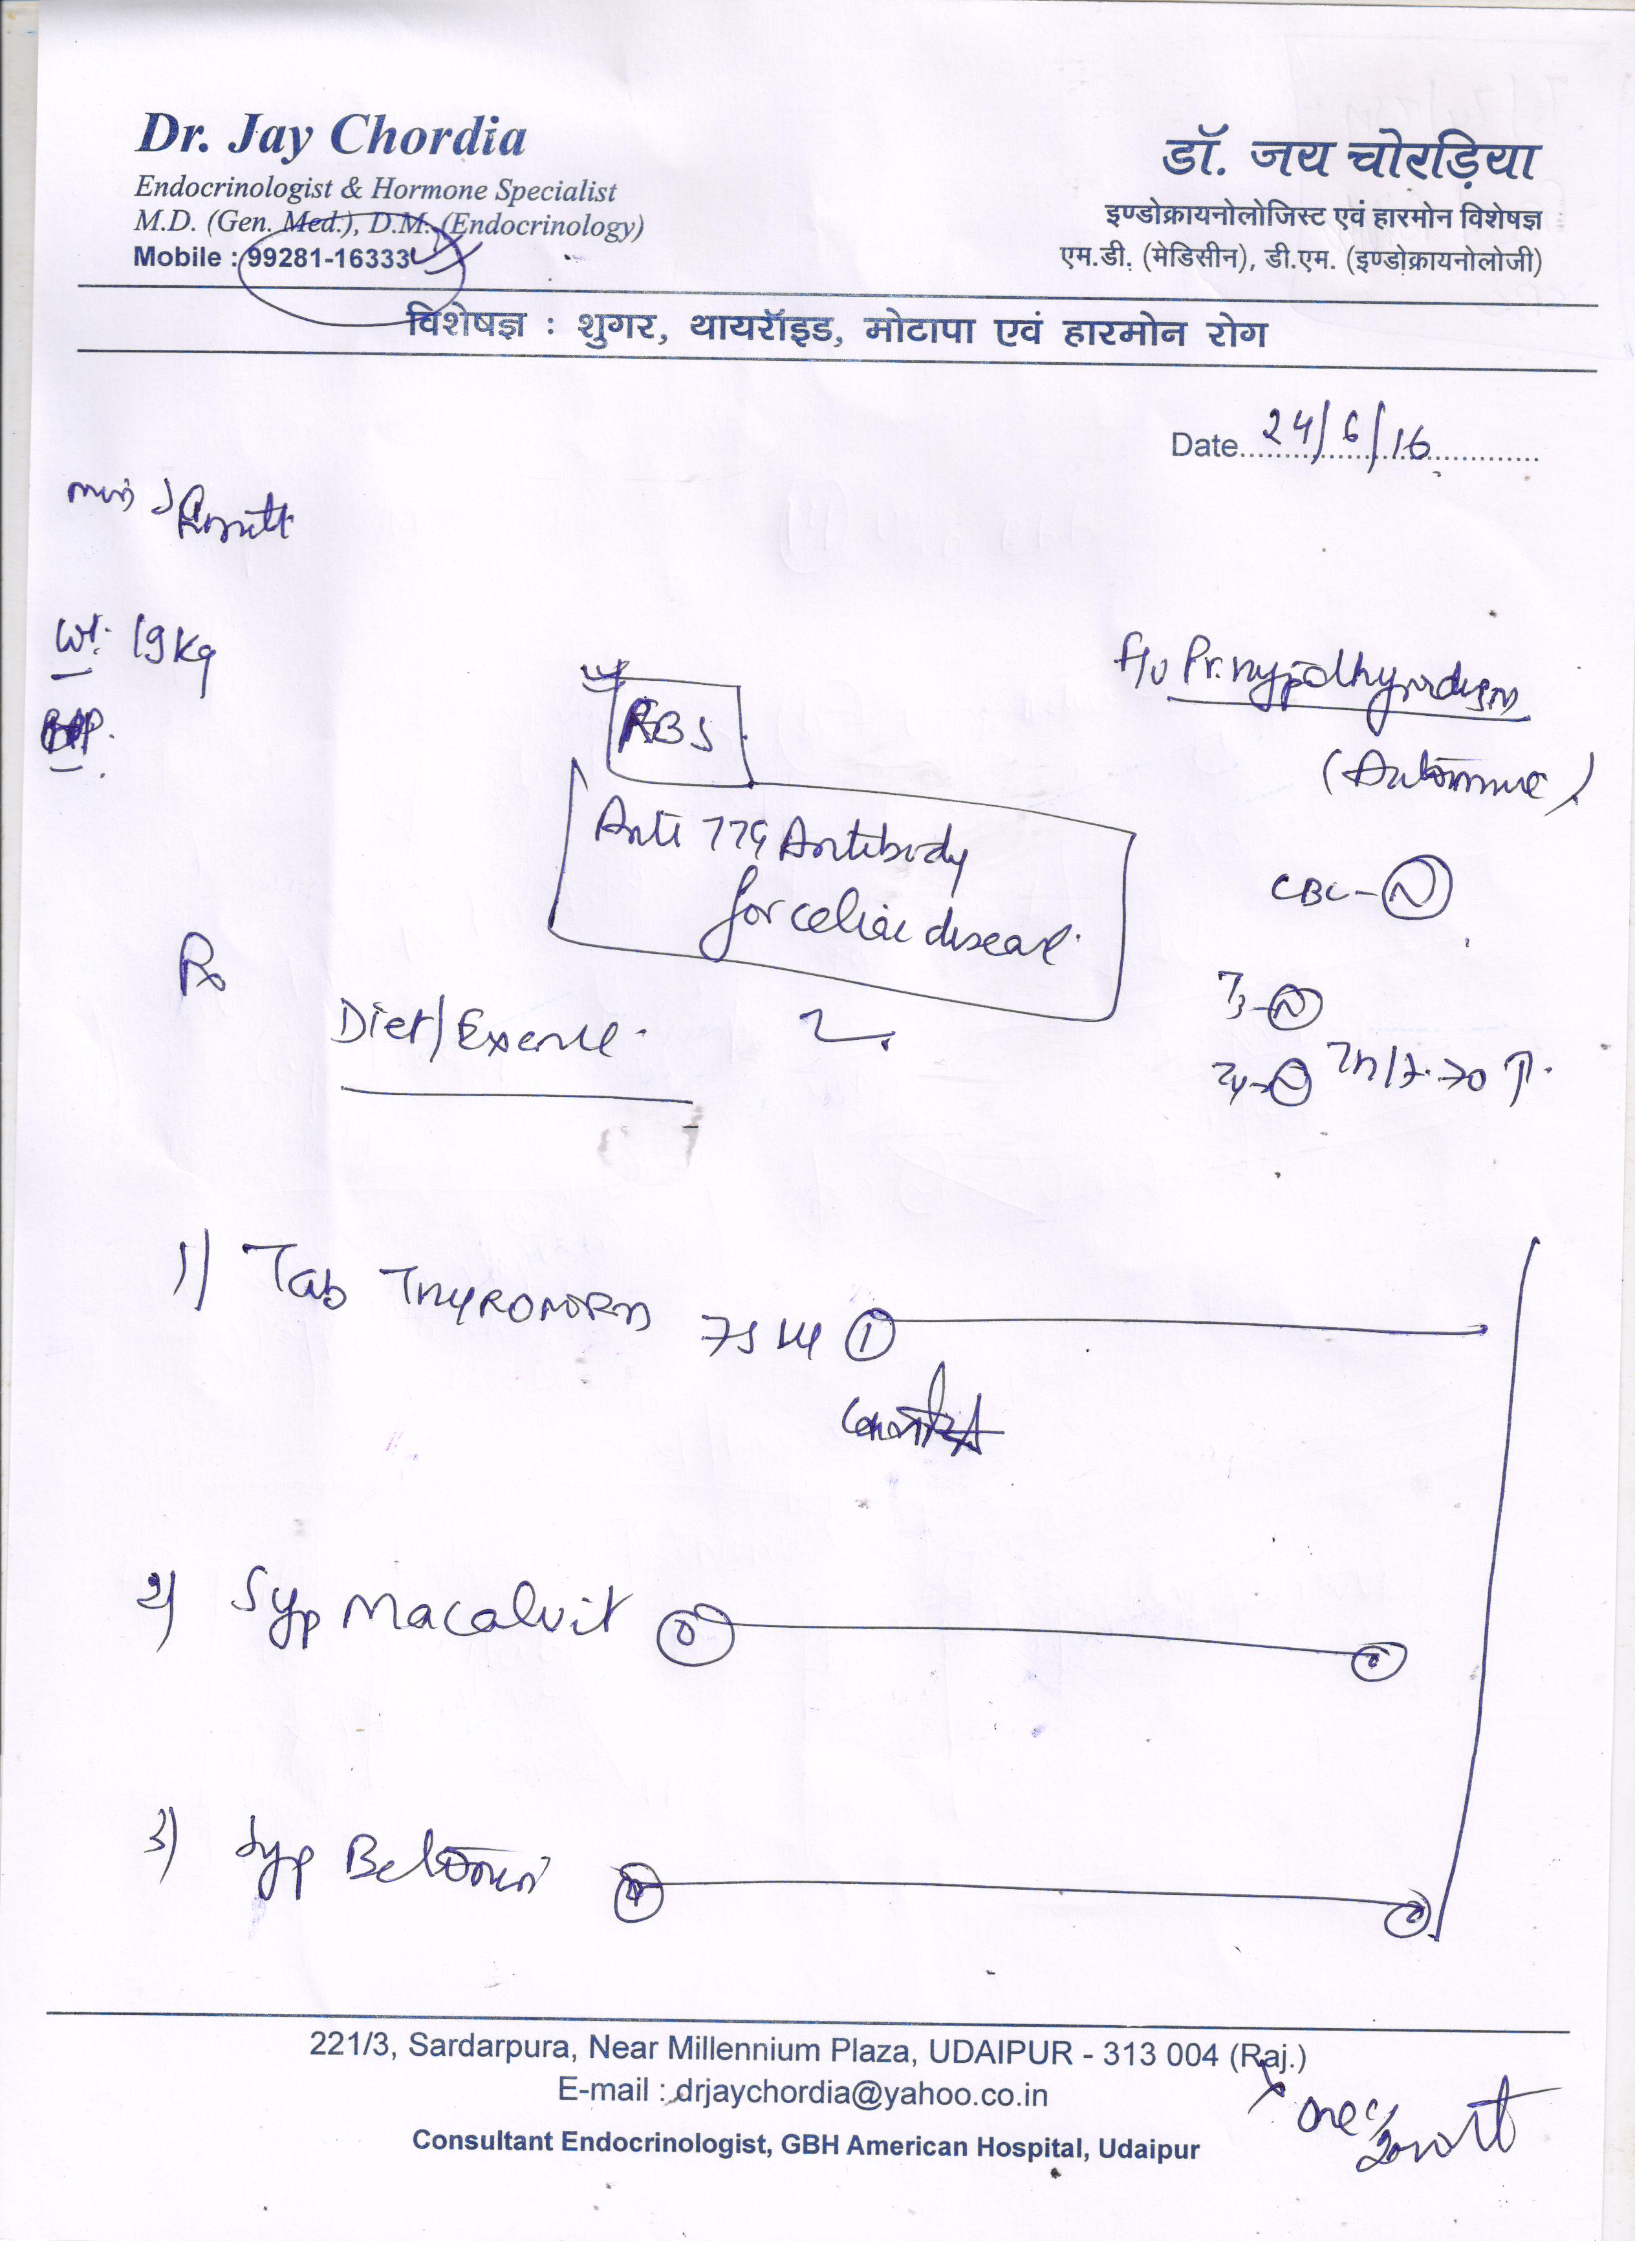 Dr. Jay Chordia
Endocrinologist & Hormone Specialist
M.D. (Gen. Med.), D.M. (Endocrinology)
Mobile : 99281-16333
डॉ. जय चोरड़िया
इण्डोक्रायनोलोजिस्ट एवं हारमोन विशेषज्ञ
एम.डी. (मेडिसीन), डी.एम. (इण्डोक्रायनोलोजी)
विशेषज्ञ : शुगर, थायरॉइड, मोटापा एवं हारमोन रोग
Date 24/6/16
Wt. 19 Kg
BP.
RBS
Anti TTG Antibody
for celiac disease.
F/U Pr. Hypothyroidism
(Autoimmune)
CBC - N
T3 - N
T4 - N
Rx
Diet/Exercise.
1) Tab THYRONORM 75 1
2) Syp Macalvit
3) Syp
221/3, Sardarpura, Near Millennium Plaza, UDAIPUR - 313 004 (Raj.)
E-mail : drjaychordia@yahoo.co.in
Consultant Endocrinologist, GBH American Hospital, Udaipur